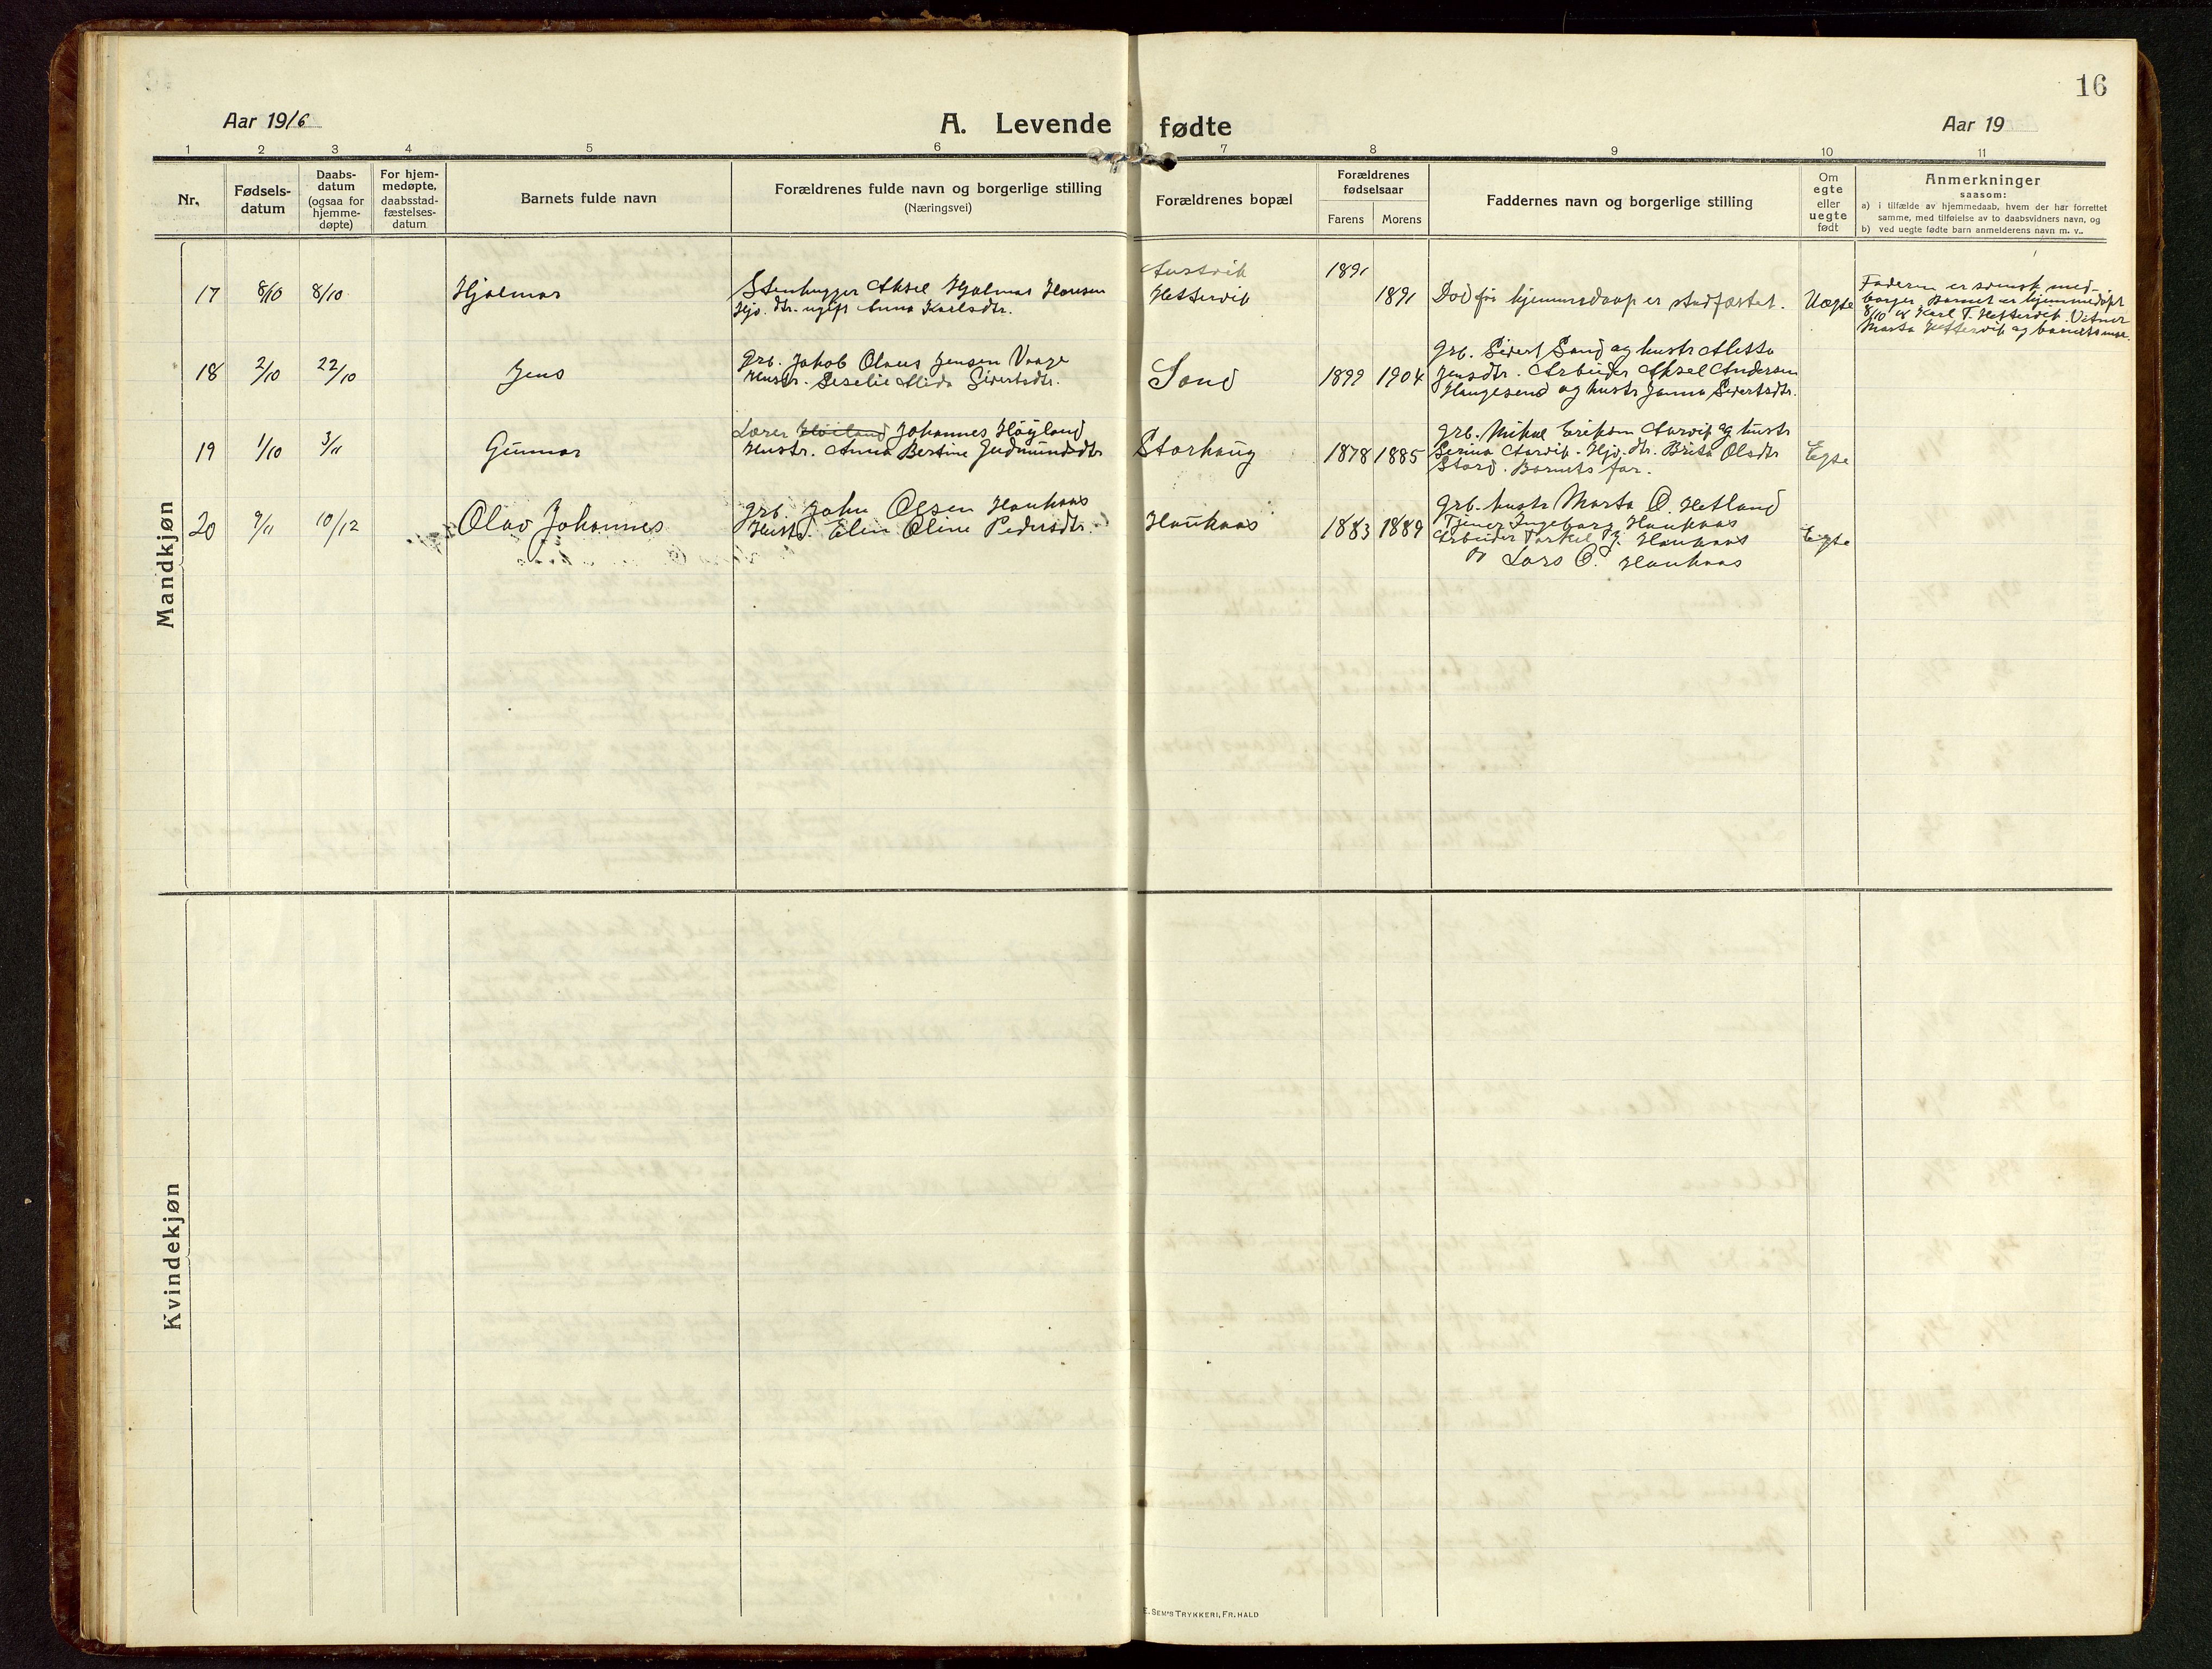 16
Aar 1916
A. Levende fødte
Aar 19
1 2 3 4 5 6 7 8 9 10 11
Nr.
Fødsels-
datum
Daabs-
datum
(ogsaa for
hjemme-
døpte)
For hjem-
medøpte,
daabsstad-
fæstelses-
datum
Barnets fulde navn
Forældrenes fulde navn og borgerlige stilling
(Næringsvei)
Forældrenes bopæl
Forældrenes
fødselsaar
Farens Morens
Faddernes navn og borgerlige stilling
Om
egte
eller
uegte
født
Anmerkninger
saasom:
a) i tilfælde av hjemmedaab, hvem der har forrettet
samme, med tilføielse av to daabsvidners navn, og
b) ved uegte fødte barn anmelderens navn m. v..
Mandkjøn
17 8/10 8/10 Hjalmar
Stenhugger Aksel Hjalmar Hansen
Hjv. dtr. ugift Anna Karlsdtr.
Austvik
Hettervik
1891
1891
Död för hjemmedaap er stadfæstet.
Uegte
Faderen er svensk med-
borger. Barnet er hjemmedöpt
8/10 af Karl T. Hettervik. Vitner
Marta Hettervik og barnets mor.
18 2/10 22/10 Jens
Grb. Jakob Olaus Jensen Vaage
Hustr. Seselie Alida Sivertsdtr.
Sand
1899 1904
Grb. Sivert Sand og hustr Aletta
Jensdtr. Arbeider Aksel Andersen
Haugesund og hustr Janna Sivertsdtr.
19 1/10 3/11 Gunnar
Lærer Höieland Johannes Höyland
Hustr. Anna Bertine Gudmundsdtr
Storhaug
1878 1885
Grb. Mikal Eriksen Aarvik og hustr
Serina Aarvik. Hjv. dtr. Brita Olsdtr
Stord. Barnets far.
Egte
20 9/11 10/12 Olav Johannes
Grb. John Olsen Haukaas
Hustr. Elen Oline Pedersdtr.
Haukaas
1883 1889
Grb. hustr Marta O. Hetland
Tjener Ingeborg Haukaas
Arbeider Torkel Tj. Haukaas
og Lars O. Haukaas
Egte
Kvindekjøn
E. SEM'S TRYKKERI, FR. HALD